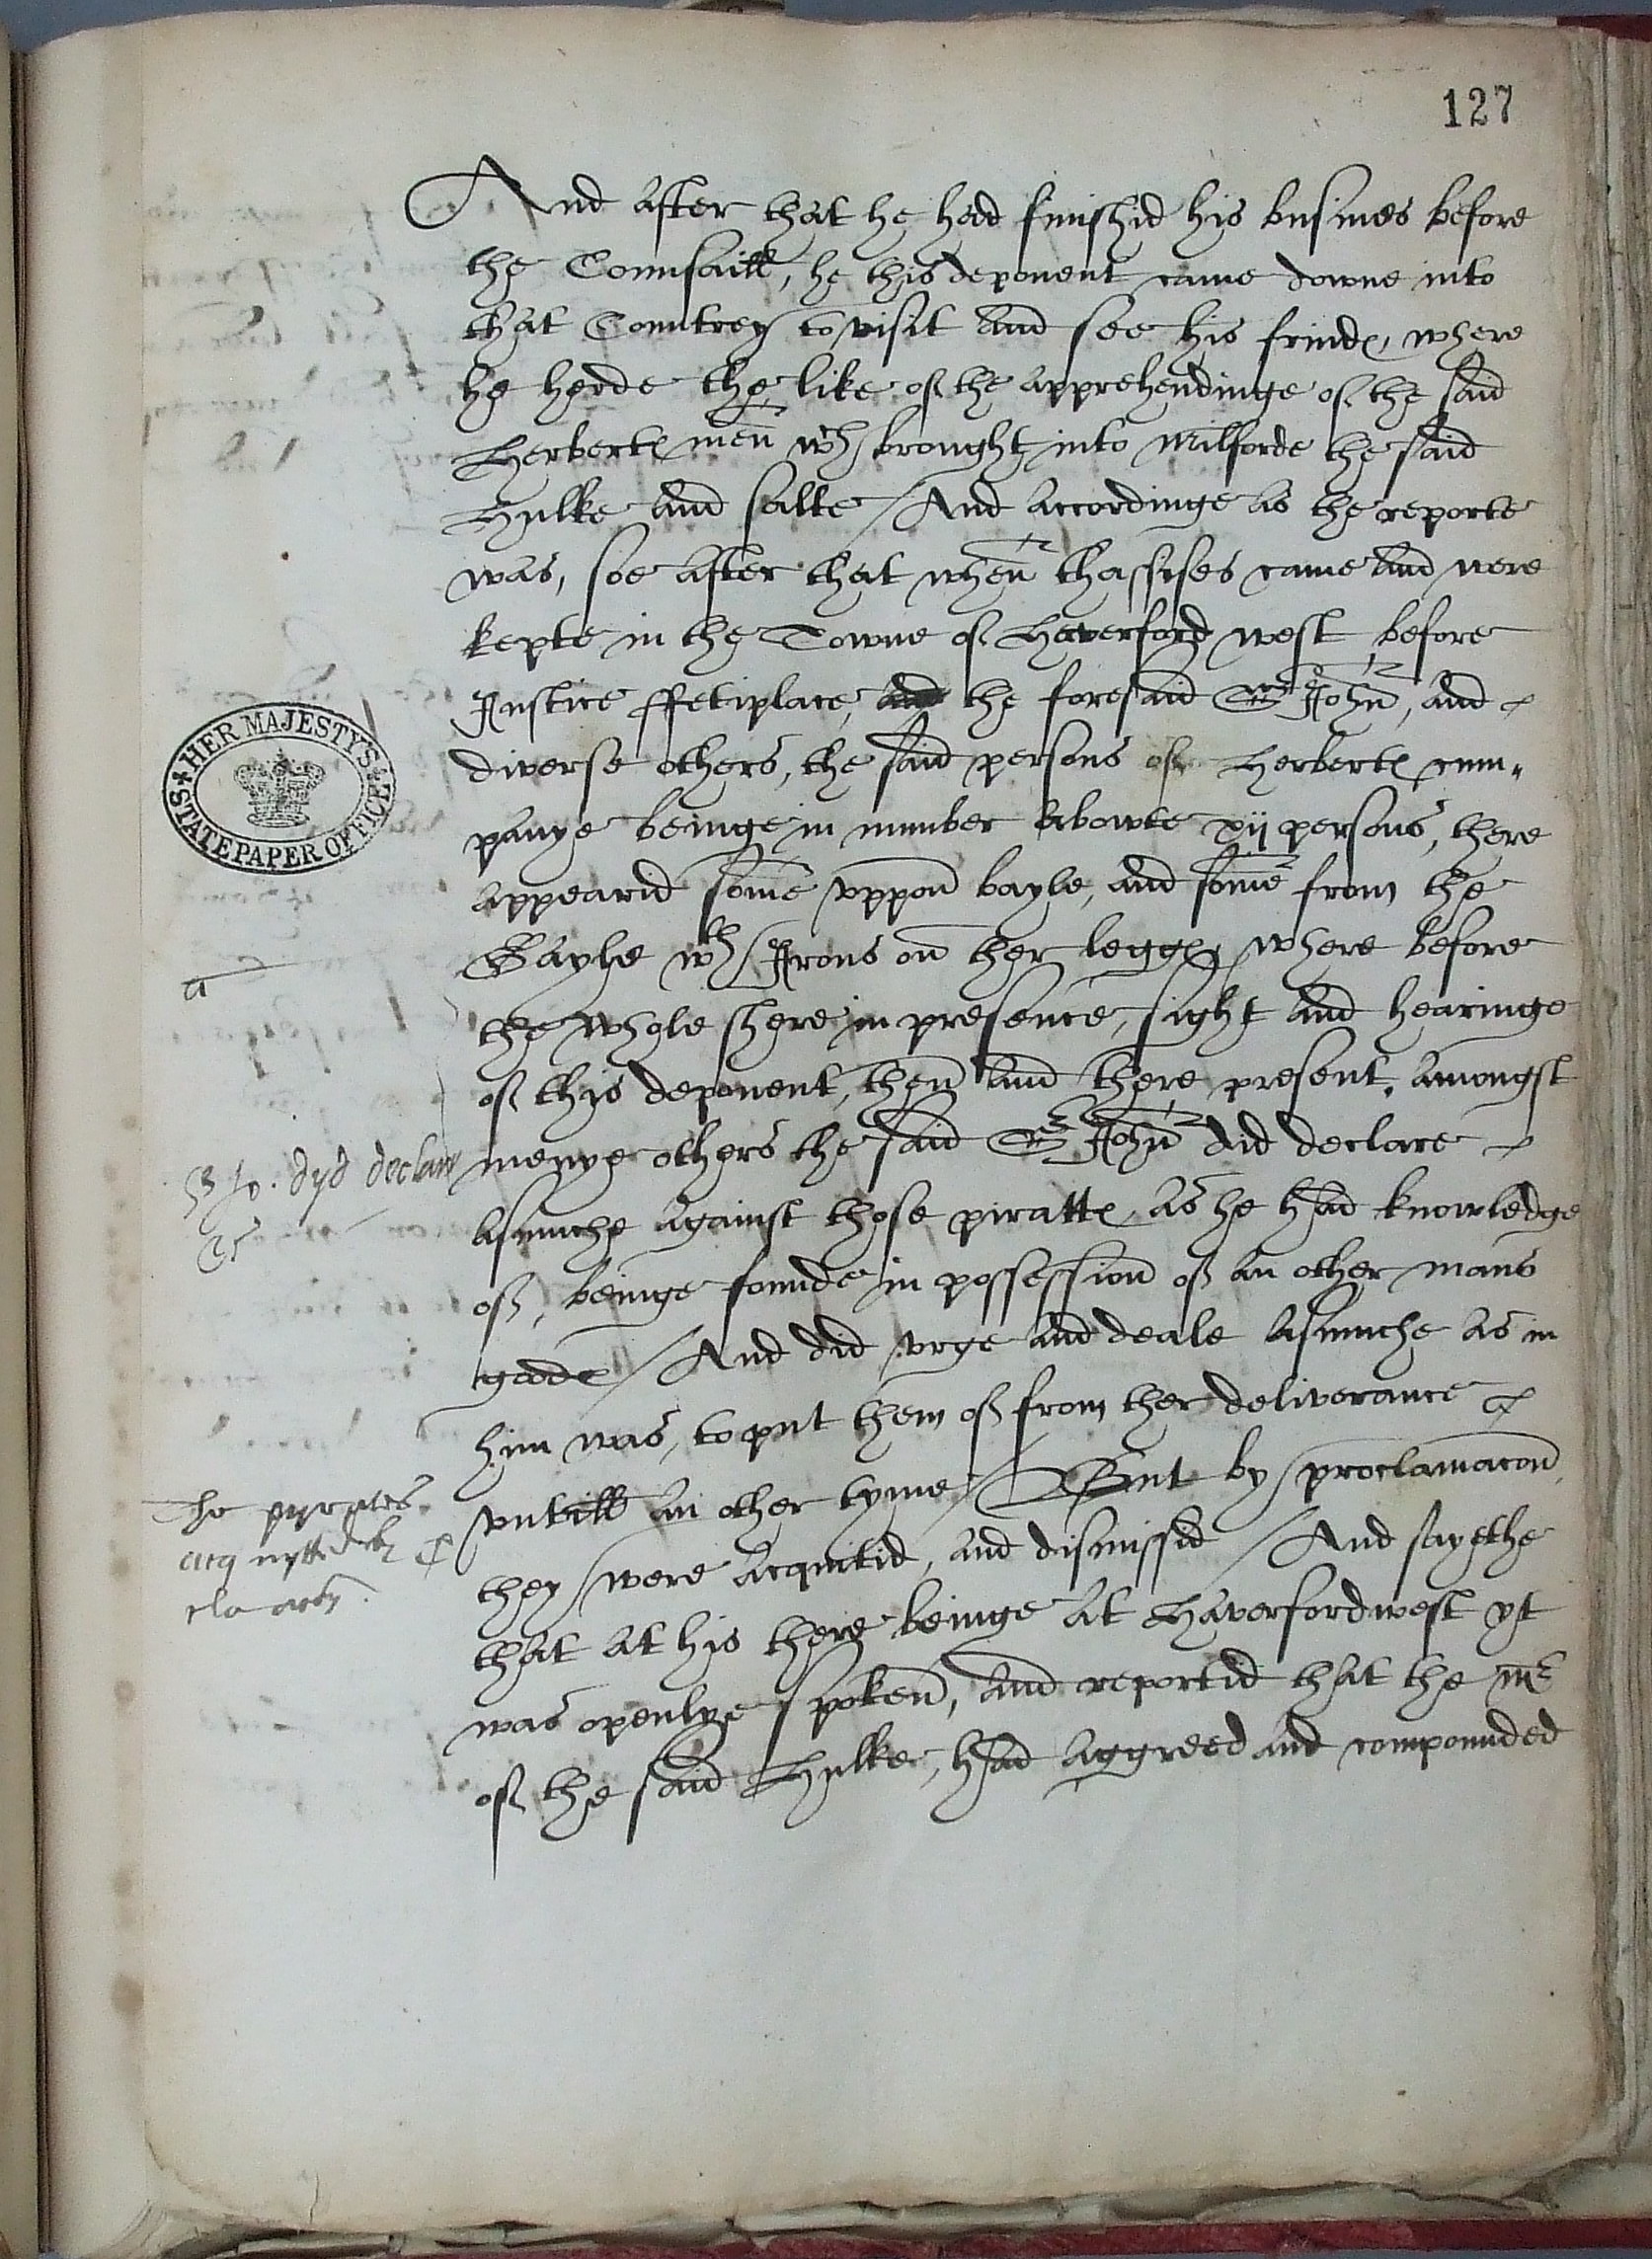 127
And after that he hadd finishid his busines before
the Counsaill, he this deponent came downe into
that Countrey to visit and see his frindes, where
he herde the like of the apprehendinge of the said
Herbertes men wch brought into Milforde the said
Hulke and salte / And accordinge as the reporte
was, soe after that when thassises came and were
kepte in the Towne of Haverford west before
Justice ffetiplace, the foresaid Sr John, and
diverse others, the said persons of Herbertes cum„
panye beinge in number abowte xij persons, there
appearid some vppon bayle, and some from the
Gayle wth Irons on ther legges, where before
the whole shere in presence, sight and hearinge
of this deponent, then and there present, amongst
menye others the said Sr John did declare
asmuche against those pirattes, as he had knowledge
of, beinge founde in possession of an other mans
goodes / And did vrge and deale asmuche as in
him was, to put them of from ther deliverance
vntill an other tyme / But by proclamacon
they were acquitid, and dismissid / And sayethe
that at his there beinge at Haverfordwest yt
was openlye spoken, and reportid that the mr
of the said Hulke, had aggreed and compounded
HER MAJESTY'S STATE PAPER OFFICE
a
Sr Jo. dyd declare
The pyrates
acquytted by